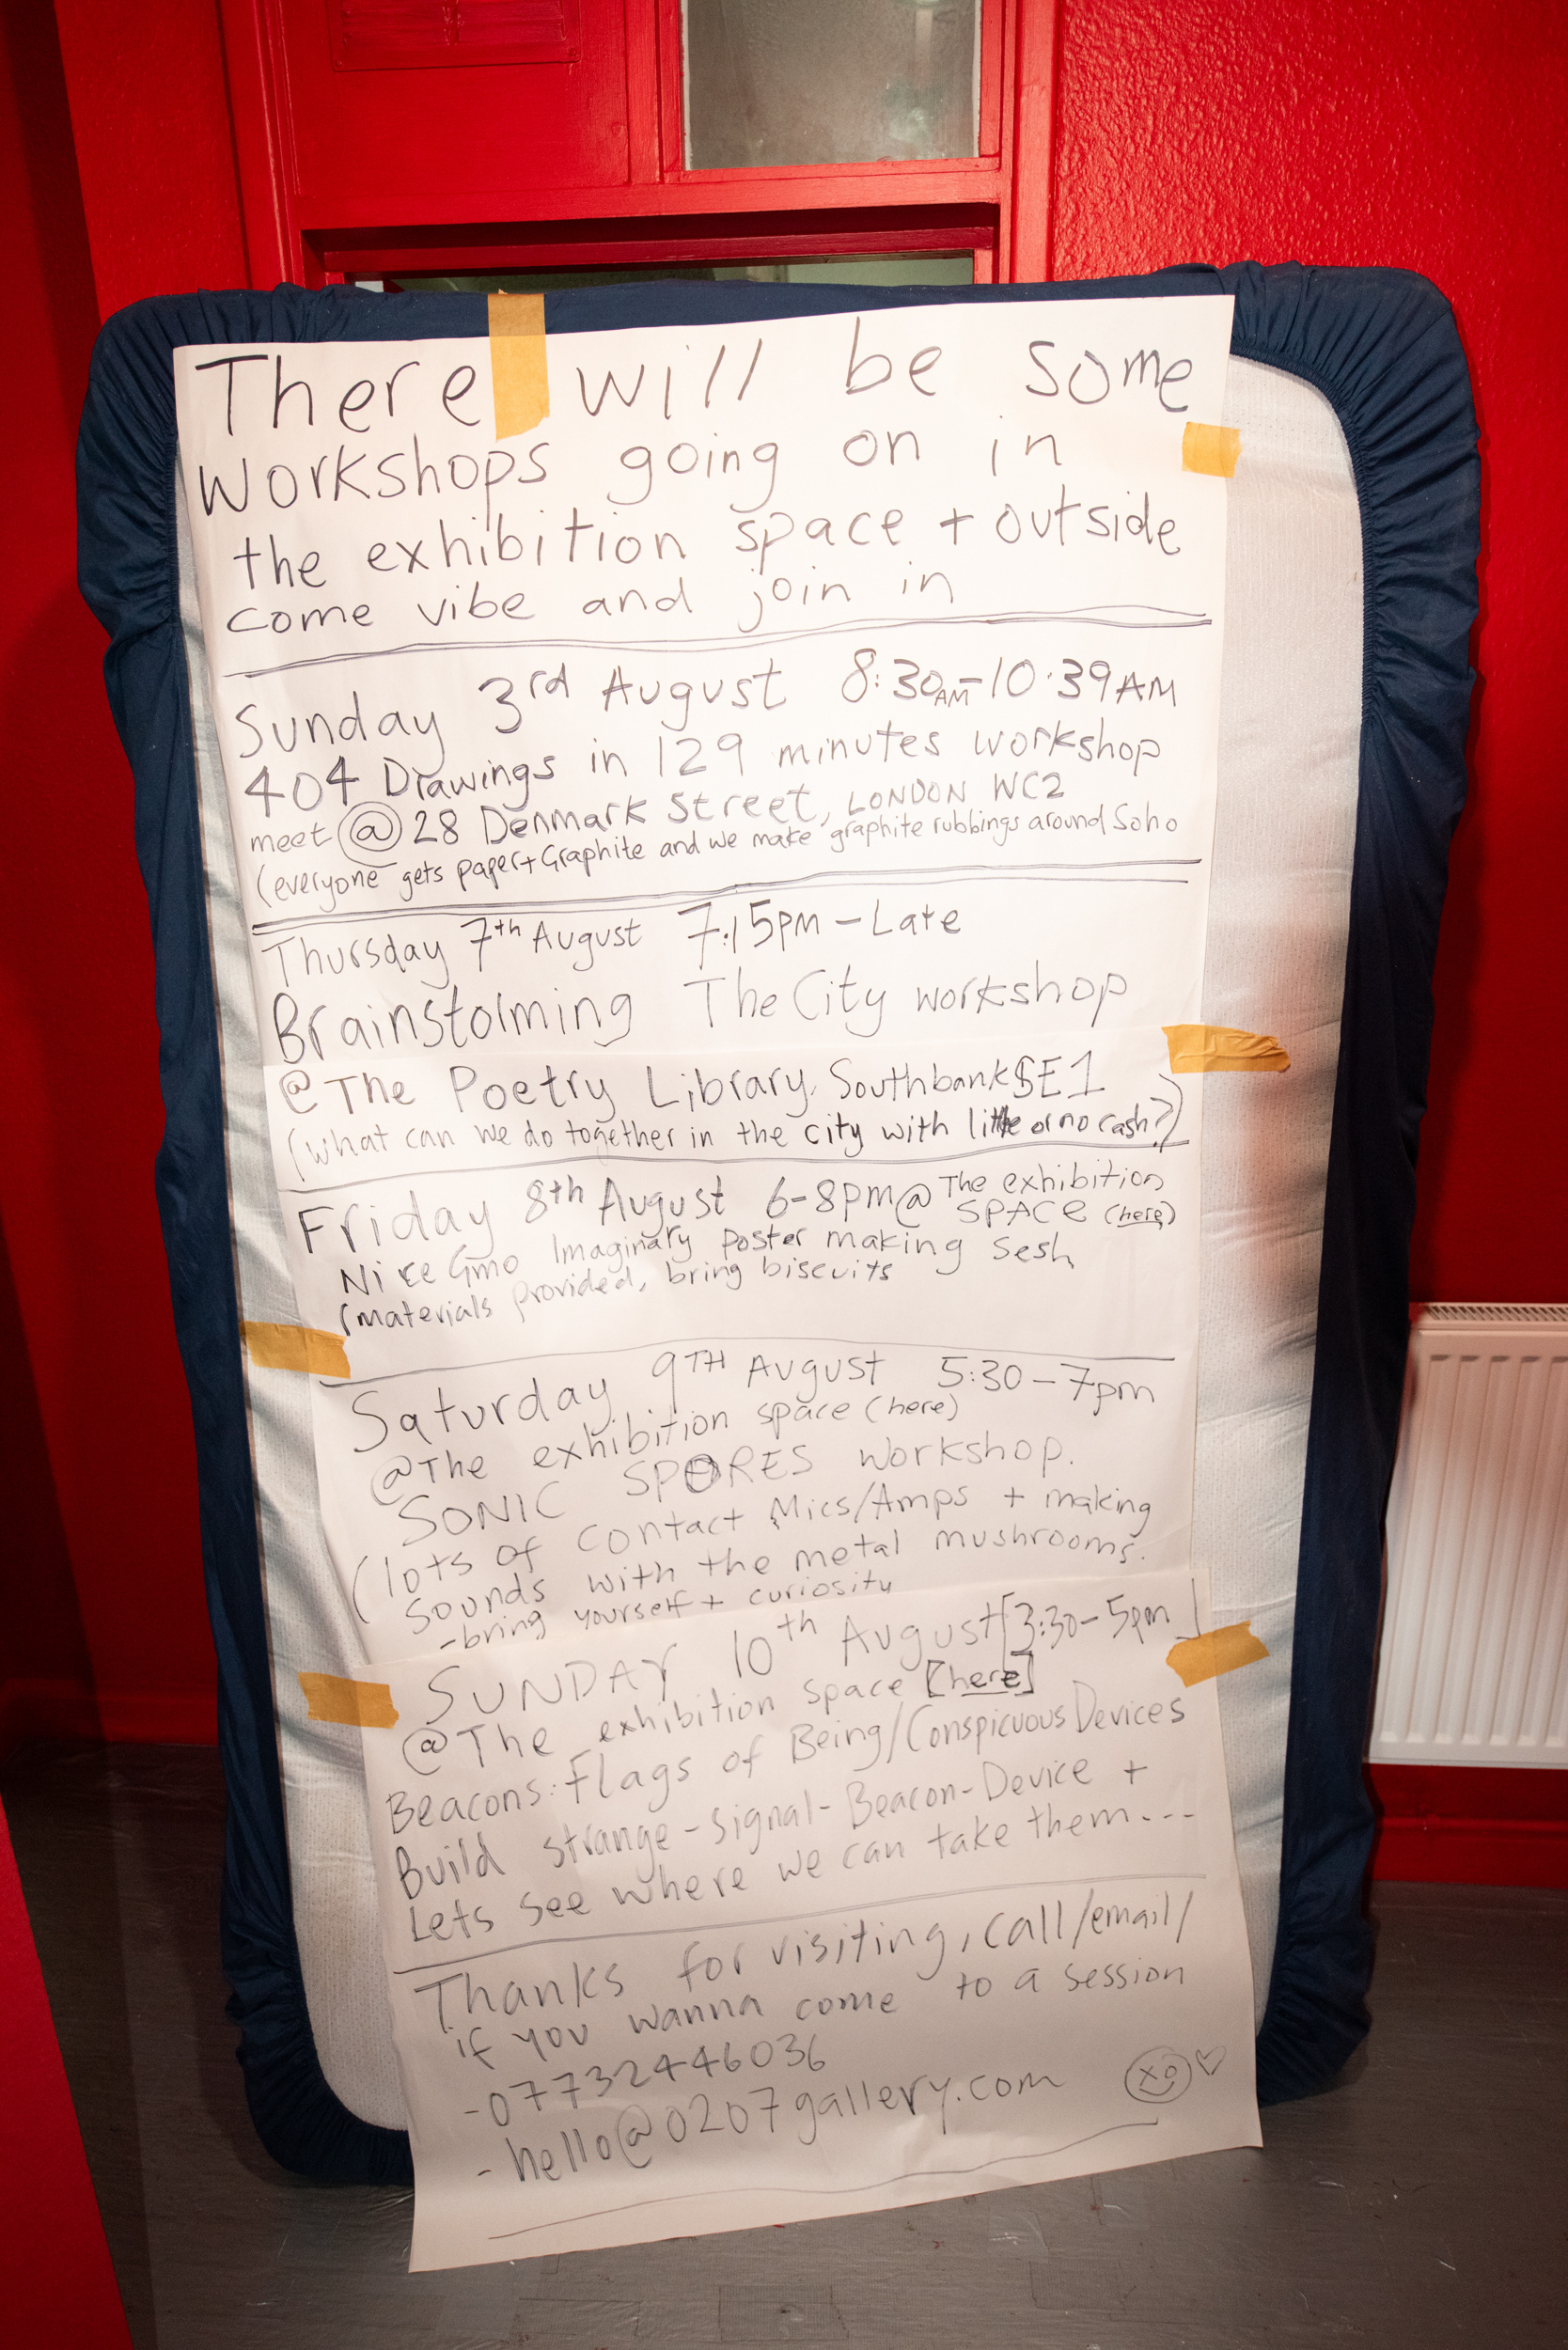 There will be some
workshops going on in
the exhibition space + outside
come vibe and join in
Sunday 3rd August 8:30AM-10.39AM
404 Drawings in 129 minutes workshop
meet @ 28 Denmark Street, LONDON WC2
(everyone gets paper+Graphite and we make graphite rubbings around Soho
Thursday 7th August 7:15pm - Late
Brainstorming The City workshop
@ The Poetry Library, Southbank SE1
(what can we do together in the city with little or no cash?)
Friday 8th August 6-8pm @ The exhibition
SPACE (here)
Imaginary poster making sesh
(materials provided, bring biscuits
Saturday 9TH August 5:30-7pm
@The exhibition space (here)
SONIC SPORES workshop.
(lots of contact Mics/Amps + making
sounds with the metal mushrooms.
-bring yourself + curiosity
SUNDAY 10th August [3:30-5pm]
@The exhibition space [here]
Beacons: Flags of Being/Conspicuous Devices
Build strange-signal-Beacon-Device +
Lets see where we can take them---
Thanks for visiting, call/email/
if you wanna come to a session
-07732446036
- hello@0207gallery.com